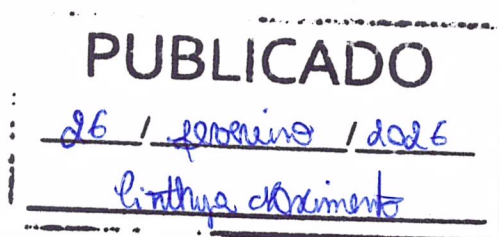 PUBLICADO
26 / fevereiro / 2026
Cinthya Nascimento